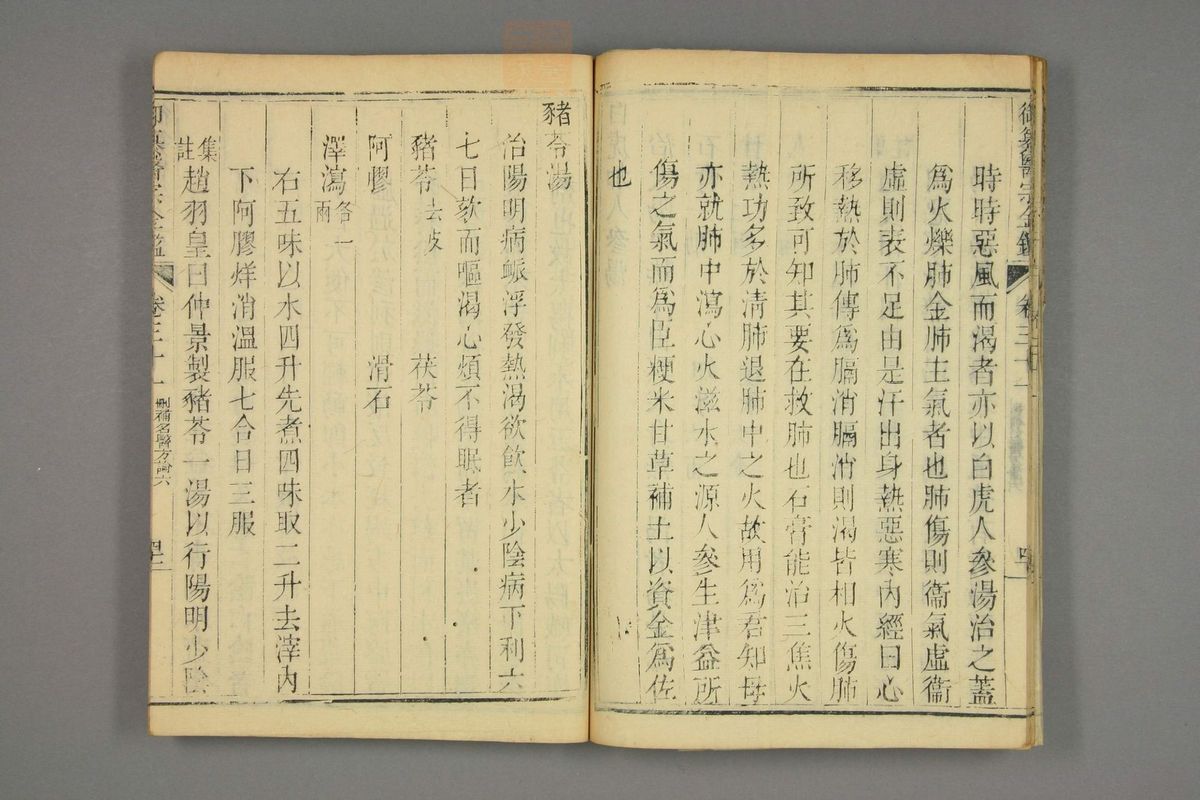 御纂醫宗金鑑 卷三十一
時時惡風而渴者亦以白虎人參湯治之蓋
爲火爍肺金肺主氣者也肺傷則衞氣虛衞
虛則表不足由是汗出身熱惡寒內經曰心
移熱於肺傳爲膈消膈消則渴皆相火傷肺
所致可知其要在救肺也石膏能治三焦火
熱功多於清肺退肺中之火故用爲君知母
亦就肺中瀉心火滋水之源人參生津益所
傷之氣而爲臣粳米甘草補土以資金爲佐
也
豬苓湯
治陽明病脈浮發熱渴欲飮水少陰病下利六
七日欬而嘔渴心煩不得眠者
豬苓去皮 茯苓
阿膠 滑石
澤瀉各一兩
右五味以水四升先煮四味取二升去滓內
下阿膠烊消溫服七合日三服
集註趙羽皇曰仲景製豬苓一湯以行陽明少陰
御纂醫宗金鑑 卷三十一 刪補名醫方論六